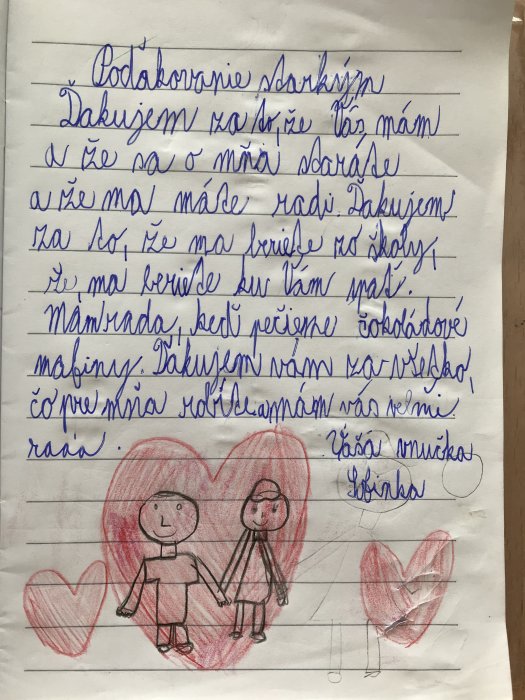 Poďakovanie starkým
Ďakujem za to, že Vás mám
a že sa o mňa staráte
a že ma máte radi. Ďakujem
za to, že ma beriete zo školy,
že ma beriete ku Vám spať.
Mám rada, keď pečieme čokoládové
mafiny. Ďakujem vám za všetko,
čo pre mňa robíte a mám vás veľmi
rada.
Vašá vnučka
Sofinka